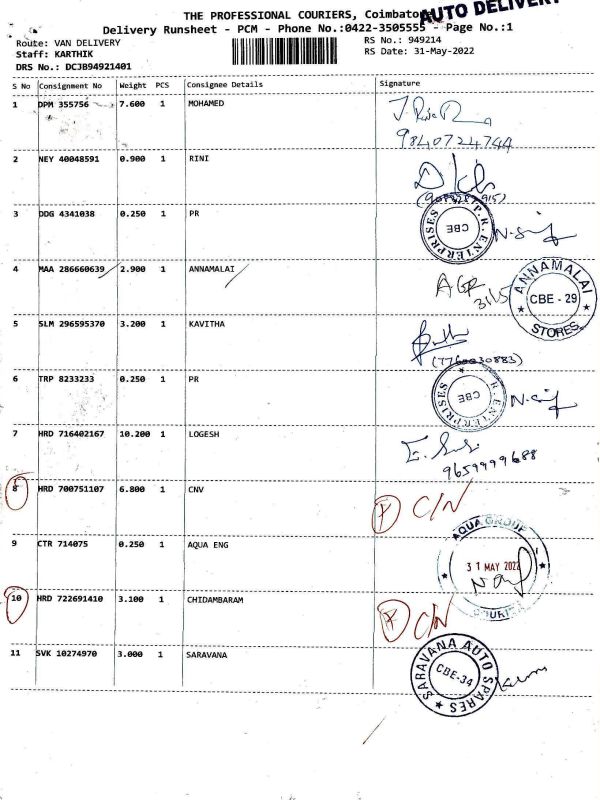 AUTO DELIVERY
THE PROFESSIONAL COURIERS, Coimbato
Delivery Runsheet - PCM - Phone No.:0422-3505555 - Page No.:1
Route: VAN DELIVERY RS No.: 949214
Staff: KARTHIK RS Date: 31-May-2022
DRS No.: DCJB94921401
S No Consignment No Weight PCS Consignee Details Signature
1 DPM 355756 7.600 1 MOHAMED
9840724744
2 NEY 40048591 0.900 1 RINI
3 DDG 4341038 0.250 1 PR
P.R. ENTERPRISES CBE
4 MAA 286660639 2.900 1 ANNAMALAI
31/5
ANNAMALAI STORES CBE - 29
5 SLM 296595370 3.200 1 KAVITHA
(7760030883)
6 TRP 8233233 0.250 1 PR
R. ENTERPRISES CBE
7 HRD 716402167 10.200 1 LOGESH
9659999688
8 HRD 700751107 6.800 1 CNV
C/N
9 CTR 714075 0.250 1 AQUA ENG
AQUA GROUP
31 MAY 2022
10 HRD 722691410 3.100 1 CHIDAMBARAM
C/N
11 SVK 10274970 3.000 1 SARAVANA
SARAVANA AUTO SPARES CBE-34